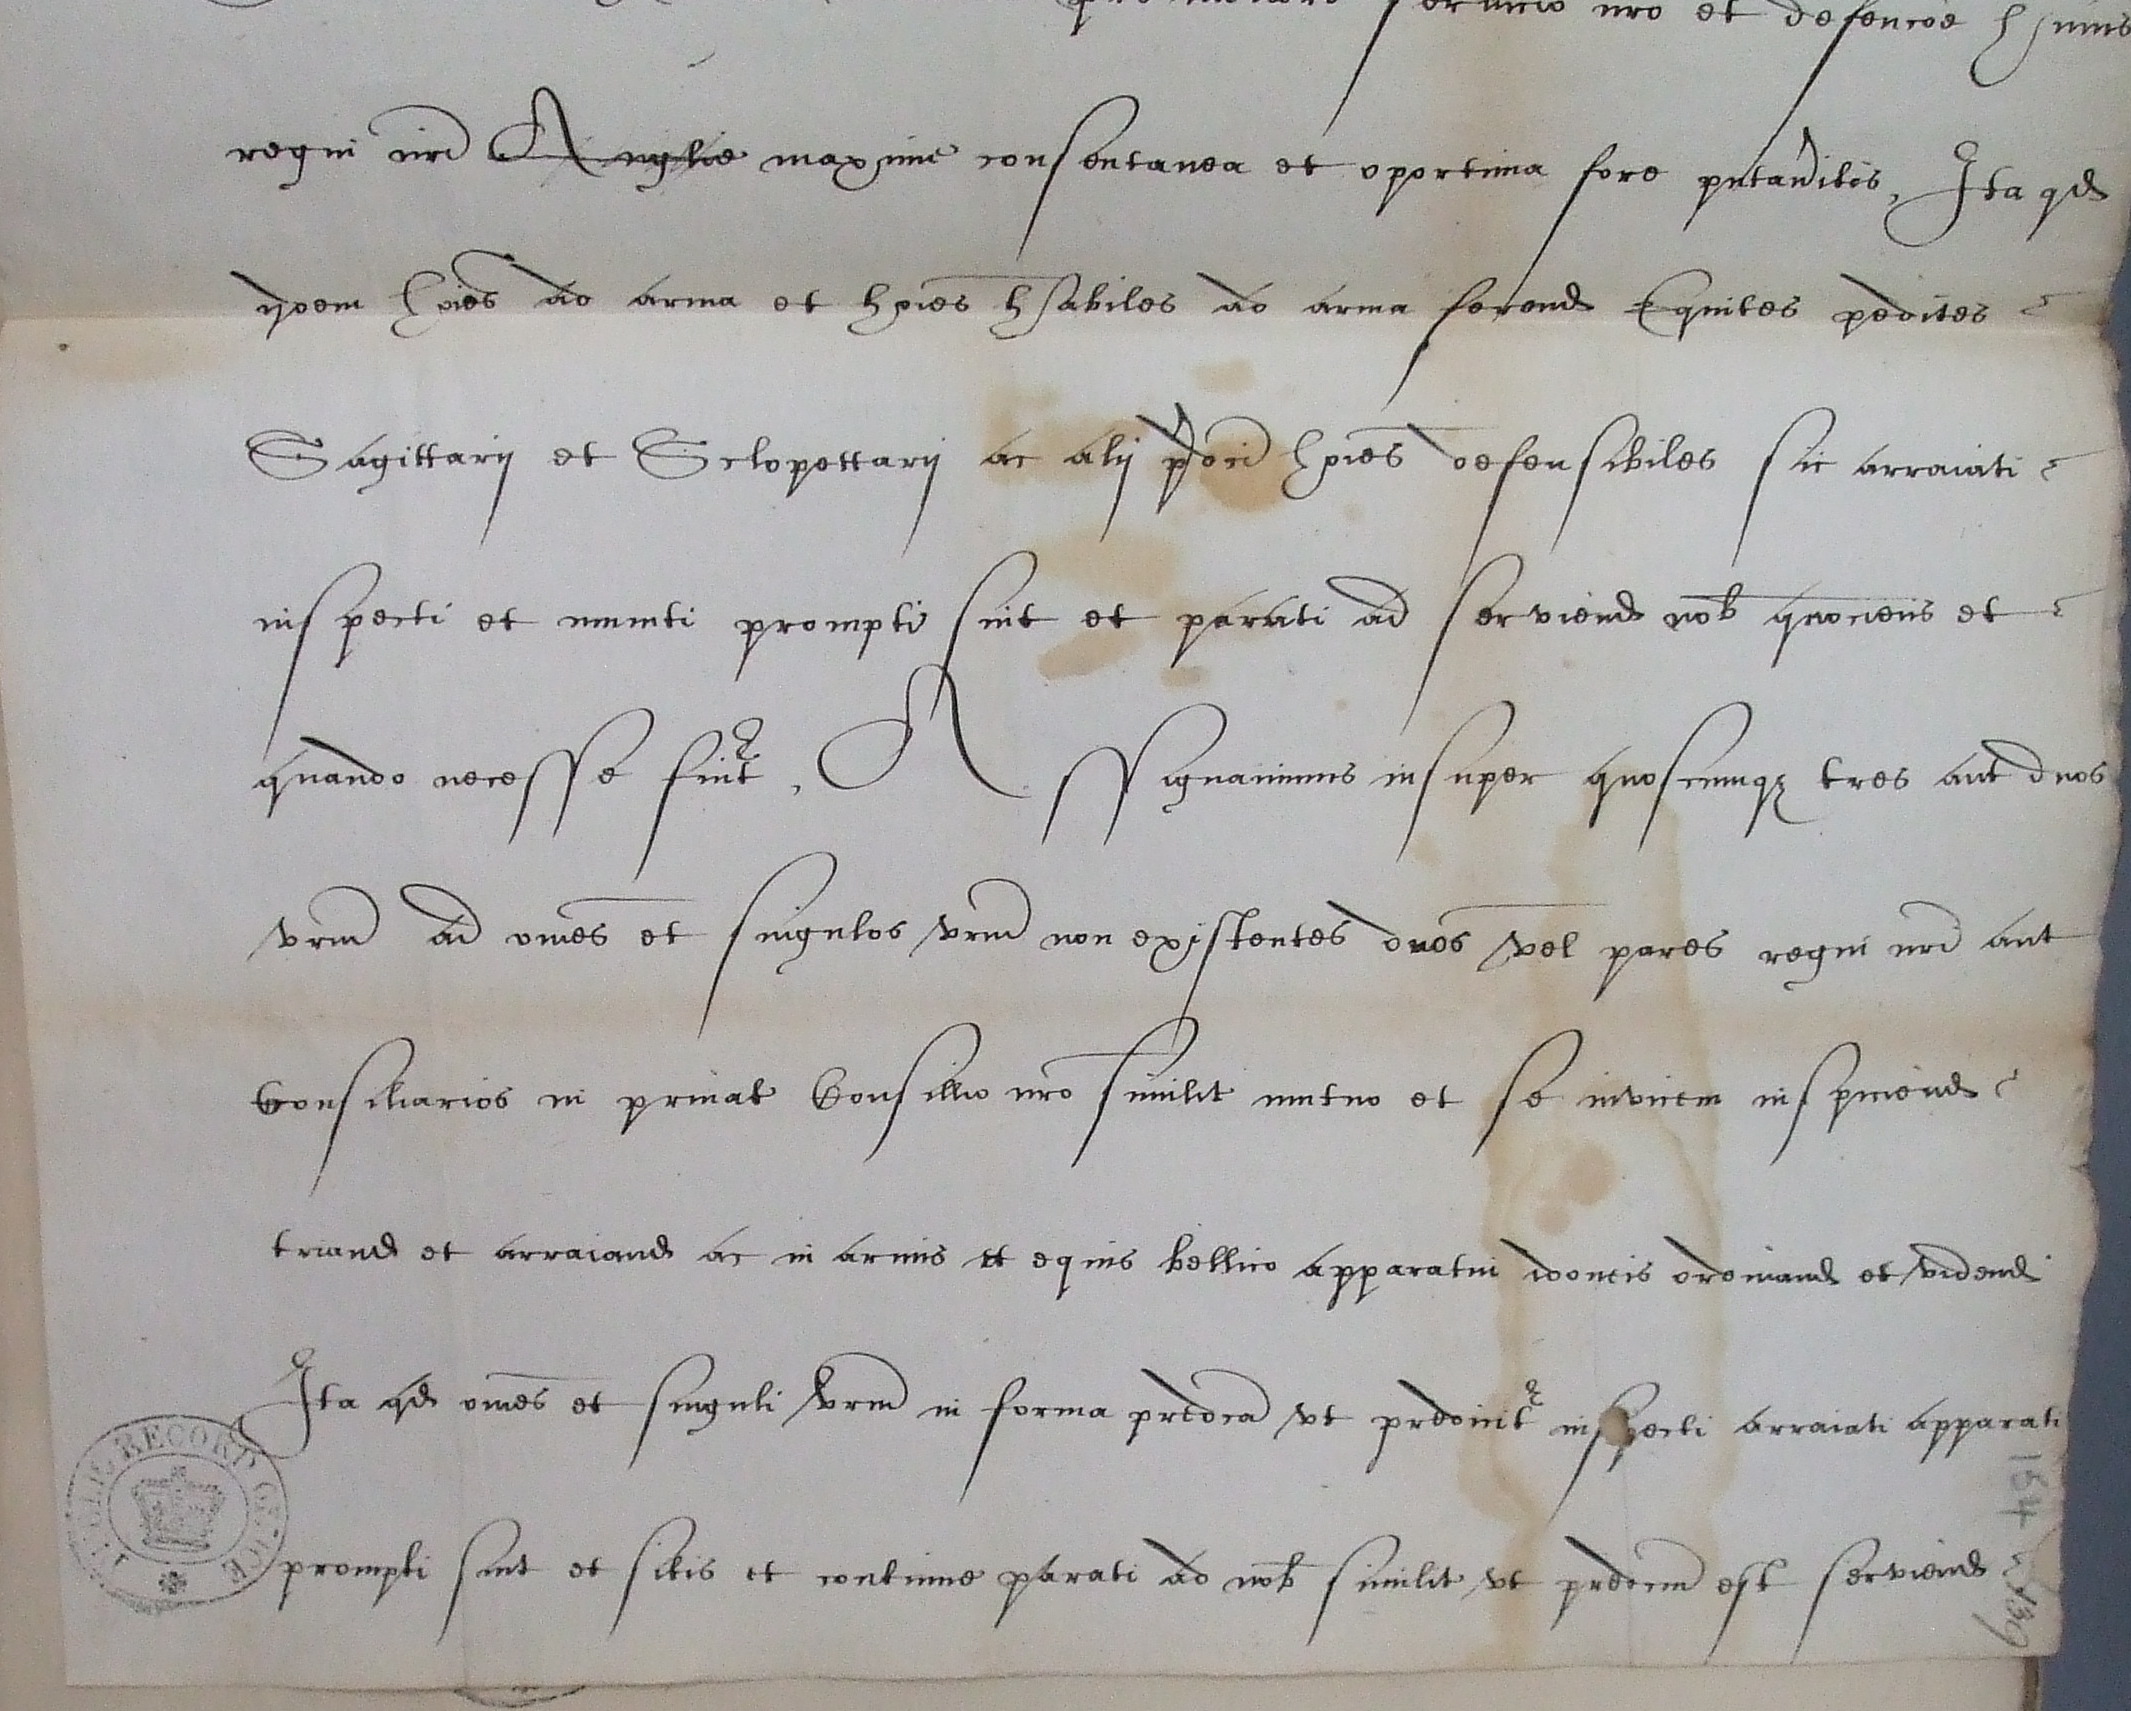 seruicio nro et defencoe huius
regni nri Anglie maxime consentanea et oportuna fore putaueritis, Ita qd
ijdem hoies ad arma et hoies habiles ad arma ferend Equites pedites
Sagittarij et Sclopettarij ac alij pdci hoies defensibiles sic arraiati
inspecti et muniti prompti sint et parati ad serviend nob quociens et
quando necesse fuit, Assignauimus insuper quoscumqz tres aut duos
vrm ad omes et singulos vrm non existentes dnos vel pares regni nri aut
Consiliarios in priuat Consilio nro similit mutuo et se invicem inspiciend
triand et arraiand ac in armis et equis bellico apparatui idoneis ordinand et vidend
Ita qd omes et singuli vrm in forma predca vt predicit inspecti arraiati apparati
prompti sint et sitis et continue parati ad nob similit vt predcm est serviend
PUBLIC RECORD OFFICE
154
139